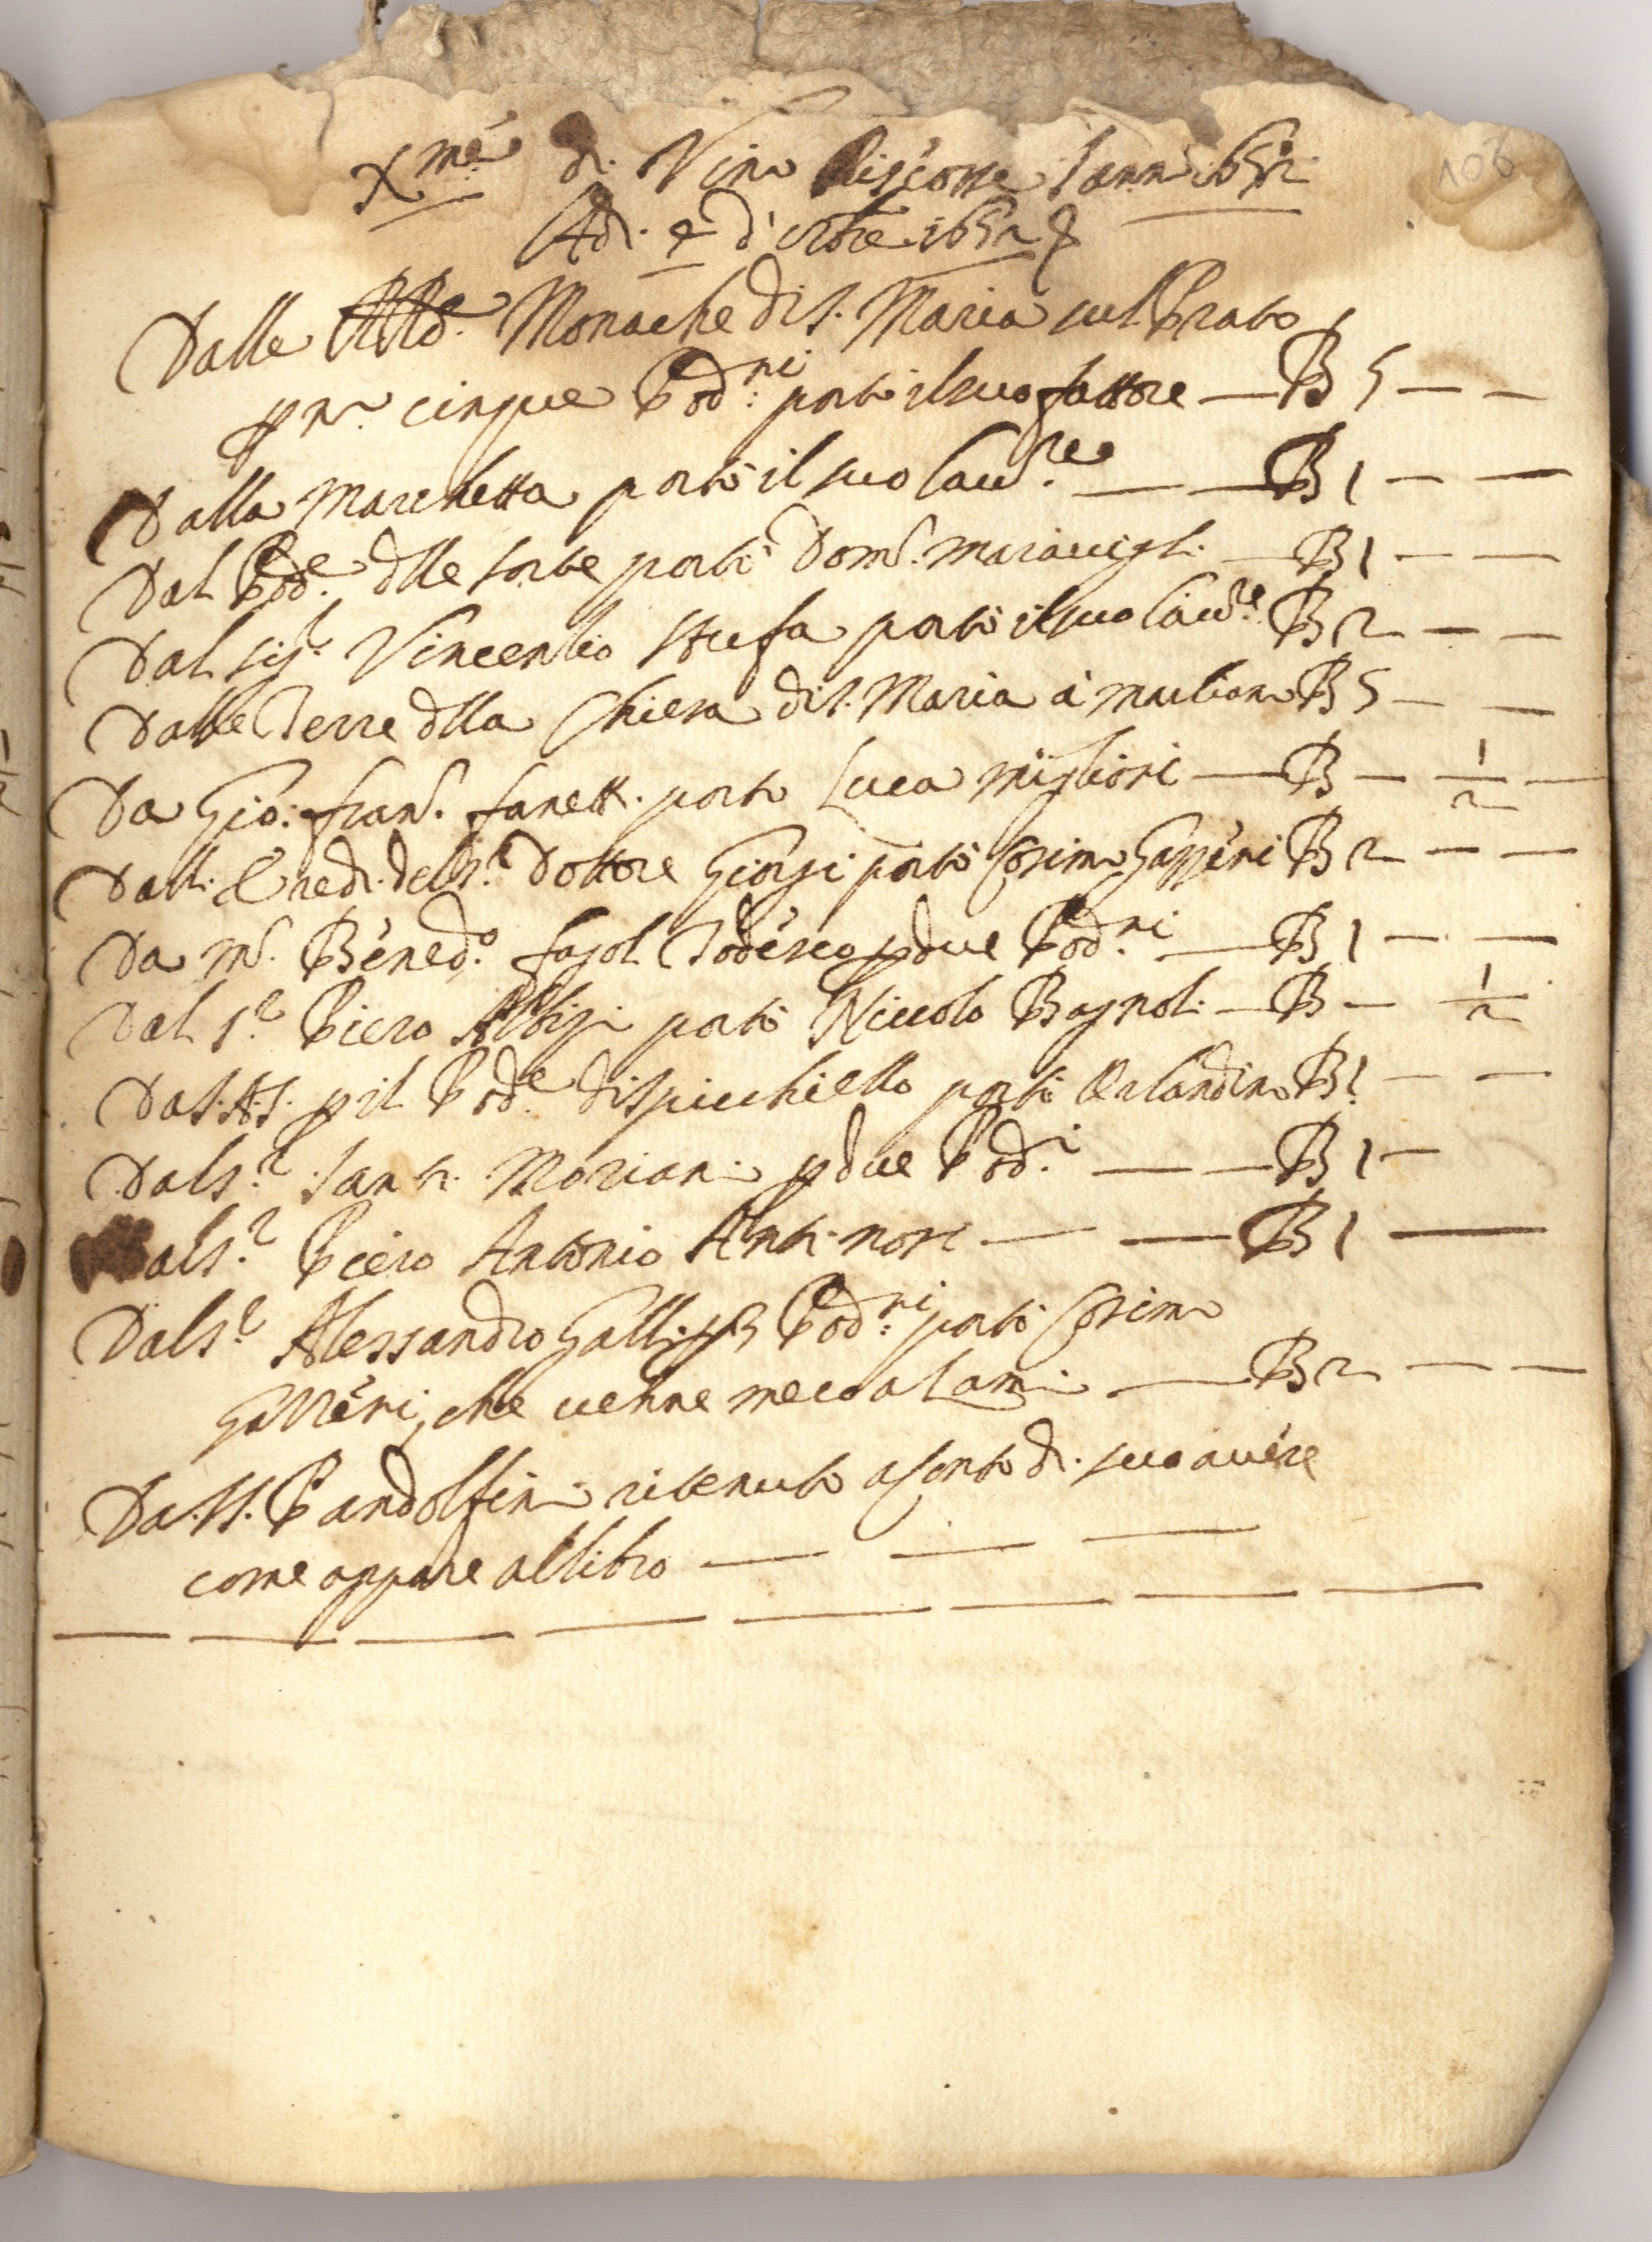 Xme di Vino Riscosse l'anno 1652
Adi 9 d'8bre 1652
Dalle RRde Monache di S. Maria sul Prato
p no cinque Pod:ri portò il suo fattore — B 5 — —
Dalla Marchetta portò il suo lau.re — — B 1 — —
Dal Pod.e dlle sorbe portò Dom.co Maravigli — B 1 — —
Dal Sig.r Vincentio Stufa portò il suo lau.re B 2 — —
Dalle Terre dlla Chiesa di S. Maria à B 5 — —
Da Gio: Fran.co portò Luca Migliori — B — 1/2 —
Dalli Eredi del S.r Dottore Giorgi portò Cosimo Gasseri B 2 — —
Da M. Bened.o Todesco p due Pod.ri — B 1 — —
Dal S.r Piero Albizi portò Niccolo Bagnoli — B — 1/2
Da S.A.S. p il Pod.e di Spicchiello portò Orlandino B 1 — —
Dal S.r Santi Moriani p due Pod.i — — B 1 —
Dal S.r Piero Antonio Antinori — — B 1 —
Dal S.r Alessandro Galli p 3 Pod:ri portò Cosimo
Gasseri, che venne meco a Lami — B 2 — —
Da SS. Pandolfini ritenuto a conto di suo avere
come appare al libro — — —